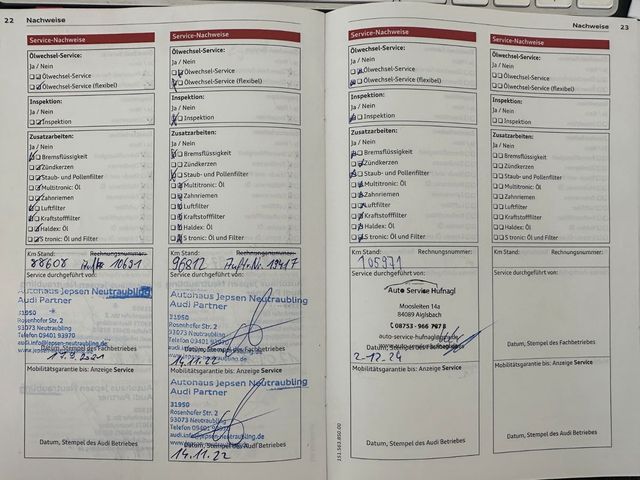 22 Nachweise
Service-Nachweise
Ölwechsel-Service:
Ja / Nein
Ölwechsel-Service
Ölwechsel-Service (flexibel)
Inspektion:
Ja / Nein
Inspektion
Zusatzarbeiten:
Ja / Nein
Bremsflüssigkeit
Zündkerzen
Staub- und Pollenfilter
Multitronic: Öl
Zahnriemen
Luftfilter
Kraftstofffilter
Haldex: Öl
S tronic: Öl und Filter
Km Stand: Rechnungsnummer:
88608 10691
Service durchgeführt von:
Autohaus Jepsen Neutraubling
Audi Partner
31950
Rosenhofer Str. 2
93073 Neutraubling
Telefon 09401 93970
audi.info@jepsen-neutraubling.de
www.jepsen-neutraubling.de
Datum, Stempel des Fachbetriebes
Mobilitätsgarantie bis: Anzeige Service
Datum, Stempel des Audi Betriebes
Service-Nachweise
Ölwechsel-Service:
Ja / Nein
Ölwechsel-Service
Ölwechsel-Service (flexibel)
Inspektion:
Ja / Nein
Inspektion
Zusatzarbeiten:
Ja / Nein
Bremsflüssigkeit
Zündkerzen
Staub- und Pollenfilter
Multitronic: Öl
Zahnriemen
Luftfilter
Kraftstofffilter
Haldex: Öl
S tronic: Öl und Filter
Km Stand: Rechnungsnummer:
96812 Auftr. Nr. 13417
Service durchgeführt von:
Autohaus Jepsen Neutraubling
Audi Partner
31950
Rosenhofer Str. 2
93073 Neutraubling
Telefon 09401 93970
audi.info@jepsen-neutraubling.de
www.jepsen-neutraubling.de
Datum, Stempel des Fachbetriebes
14.11.22
Mobilitätsgarantie bis: Anzeige Service
Autohaus Jepsen Neutraubling
Audi Partner
31950
Rosenhofer Str. 2
93073 Neutraubling
Telefon 09401
audi.info@jepsen-neutraubling.de
Datum, Stempel des Audi Betriebes
14.11.22
Nachweise 23
Service-Nachweise
Ölwechsel-Service:
Ja / Nein
Ölwechsel-Service
Ölwechsel-Service (flexibel)
Inspektion:
Ja / Nein
Inspektion
Zusatzarbeiten:
Ja / Nein
Bremsflüssigkeit
Zündkerzen
Staub- und Pollenfilter
Multitronic: Öl
Zahnriemen
Luftfilter
Kraftstofffilter
Haldex: Öl
S tronic: Öl und Filter
Km Stand: Rechnungsnummer:
105931
Service durchgeführt von:
Auto Service Hufnagl
Moosleiten 14a
84089 Aiglsbach
08753 - 966 7978
auto-service-hufnagl
Datum, Stempel des Fachbetriebes
2-12.24
Mobilitätsgarantie bis: Anzeige Service
Datum, Stempel des Audi Betriebes
151.563.850.00
Service-Nachweise
Ölwechsel-Service:
Ja / Nein
Ölwechsel-Service
Ölwechsel-Service (flexibel)
Inspektion:
Ja / Nein
Inspektion
Zusatzarbeiten:
Ja / Nein
Bremsflüssigkeit
Zündkerzen
Staub- und Pollenfilter
Multitronic: Öl
Zahnriemen
Luftfilter
Kraftstofffilter
Haldex: Öl
S tronic: Öl und Filter
Km Stand: Rechnungsnummer:
Service durchgeführt von:
Datum, Stempel des Fachbetriebes
Mobilitätsgarantie bis: Anzeige Service
Datum, Stempel des Audi Betriebes